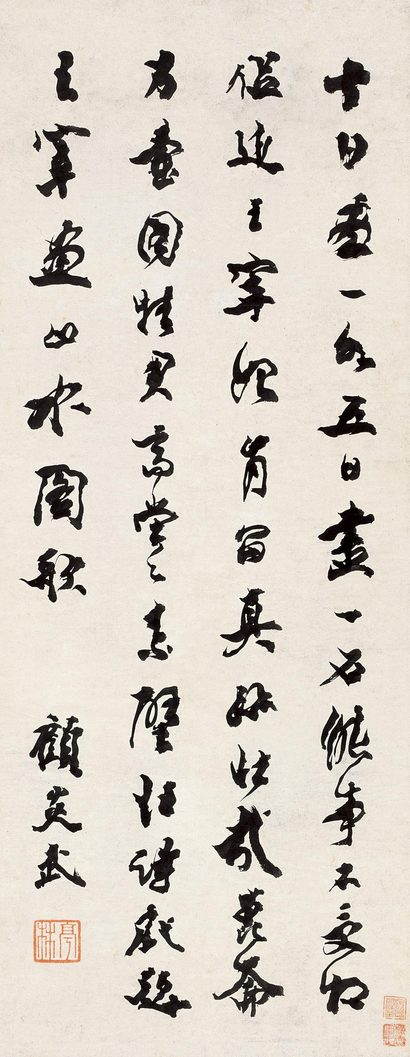 十日畫一水五日畫一石能事不受相
促迫王宰始肯留真跡壯哉崑崙
方壺圖挂君高堂之素壁杜詩戲題
王宰畫山水圖歌 顧炎武
亭林